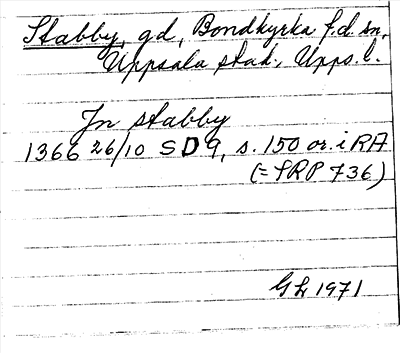 Stabby, gd, Bondkyrka f.d. sn,
Uppsala stad, Upps. l.
In stabby
1366 26/10 SD 9, s. 150 or. i RA
(= SRP 736)
GL 1971